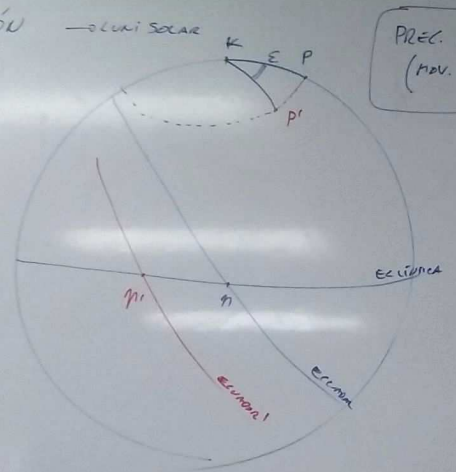 ÓN → LUNISOLAR
PREC.
(MOV.
K
ε
P
P'
ECLÍPTICA
ECUADOR
ECUADOR'